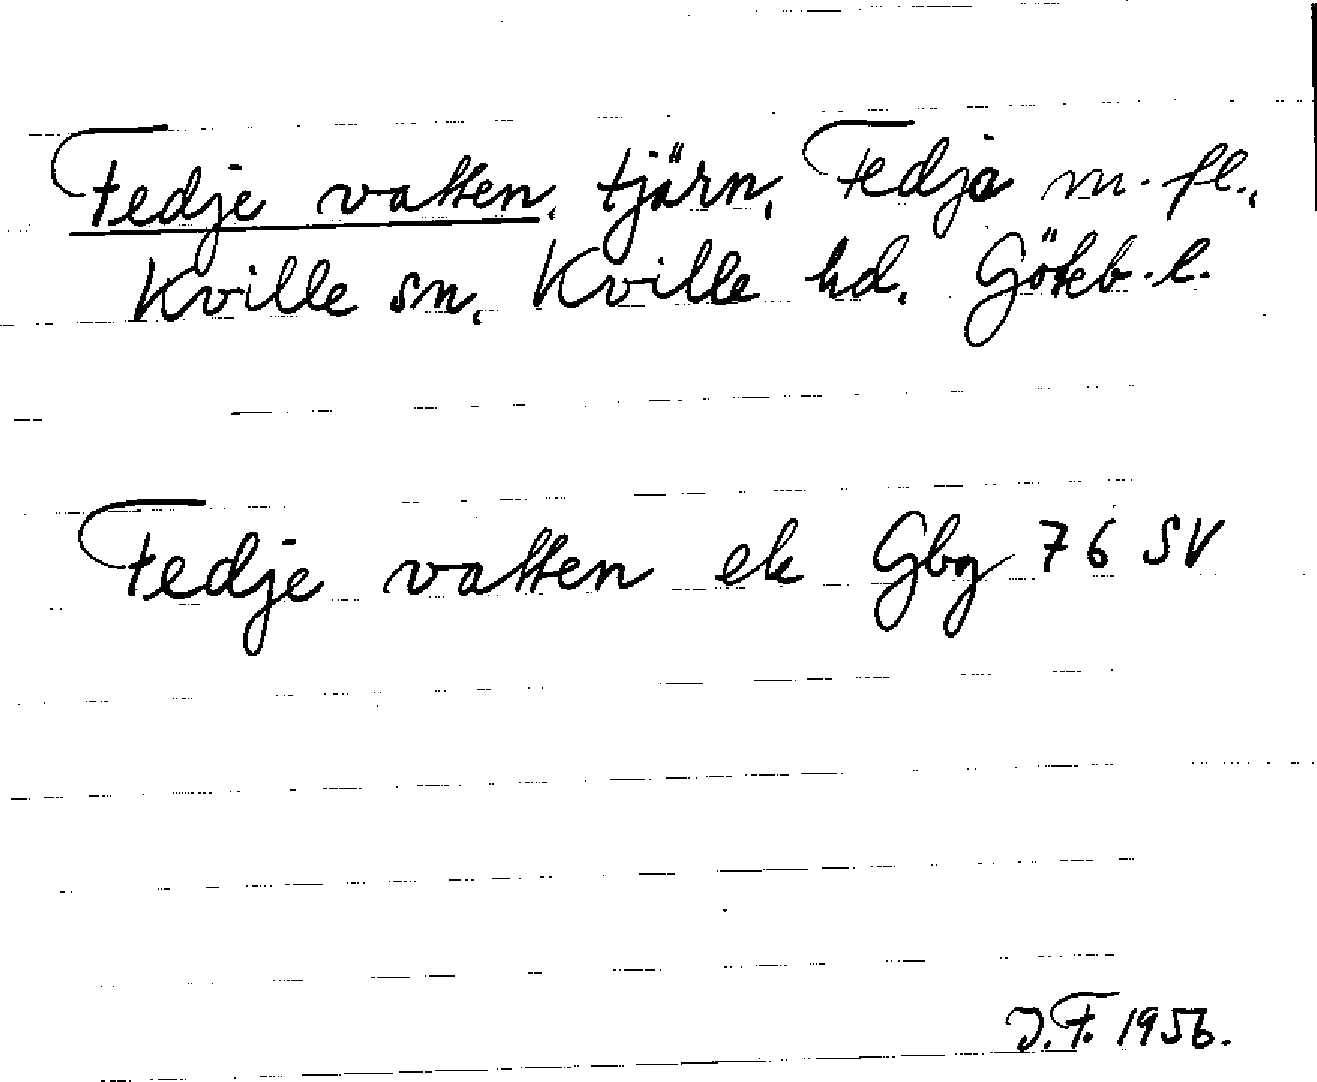 Fedje vatten, tjärn, Fedja m. fl.,
Kville sn, Kville hd. Göteb. l.
Fedje vatten ek Gbg 76 SV
J.F. 1956.